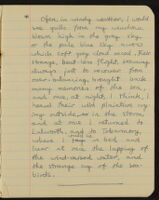 Often, in windy weather, I would
see gulls from my window
blown high in the grey sky,
or the pale blue sky mixed
while soft grey cloud mixed, their
strange, bent-wing flight, seeming
always just to recover from
over-balancing, brought back
many memories of the sea,
and once, at night, I think, I
heard their wild plaintive cry
outside in the storm
and at once I returned to
Lulworth, and to Tobermory,
where I lay in bed and
hear at sea the lapping of
the wind-raised water, and
the strange cry of the sea
birds.